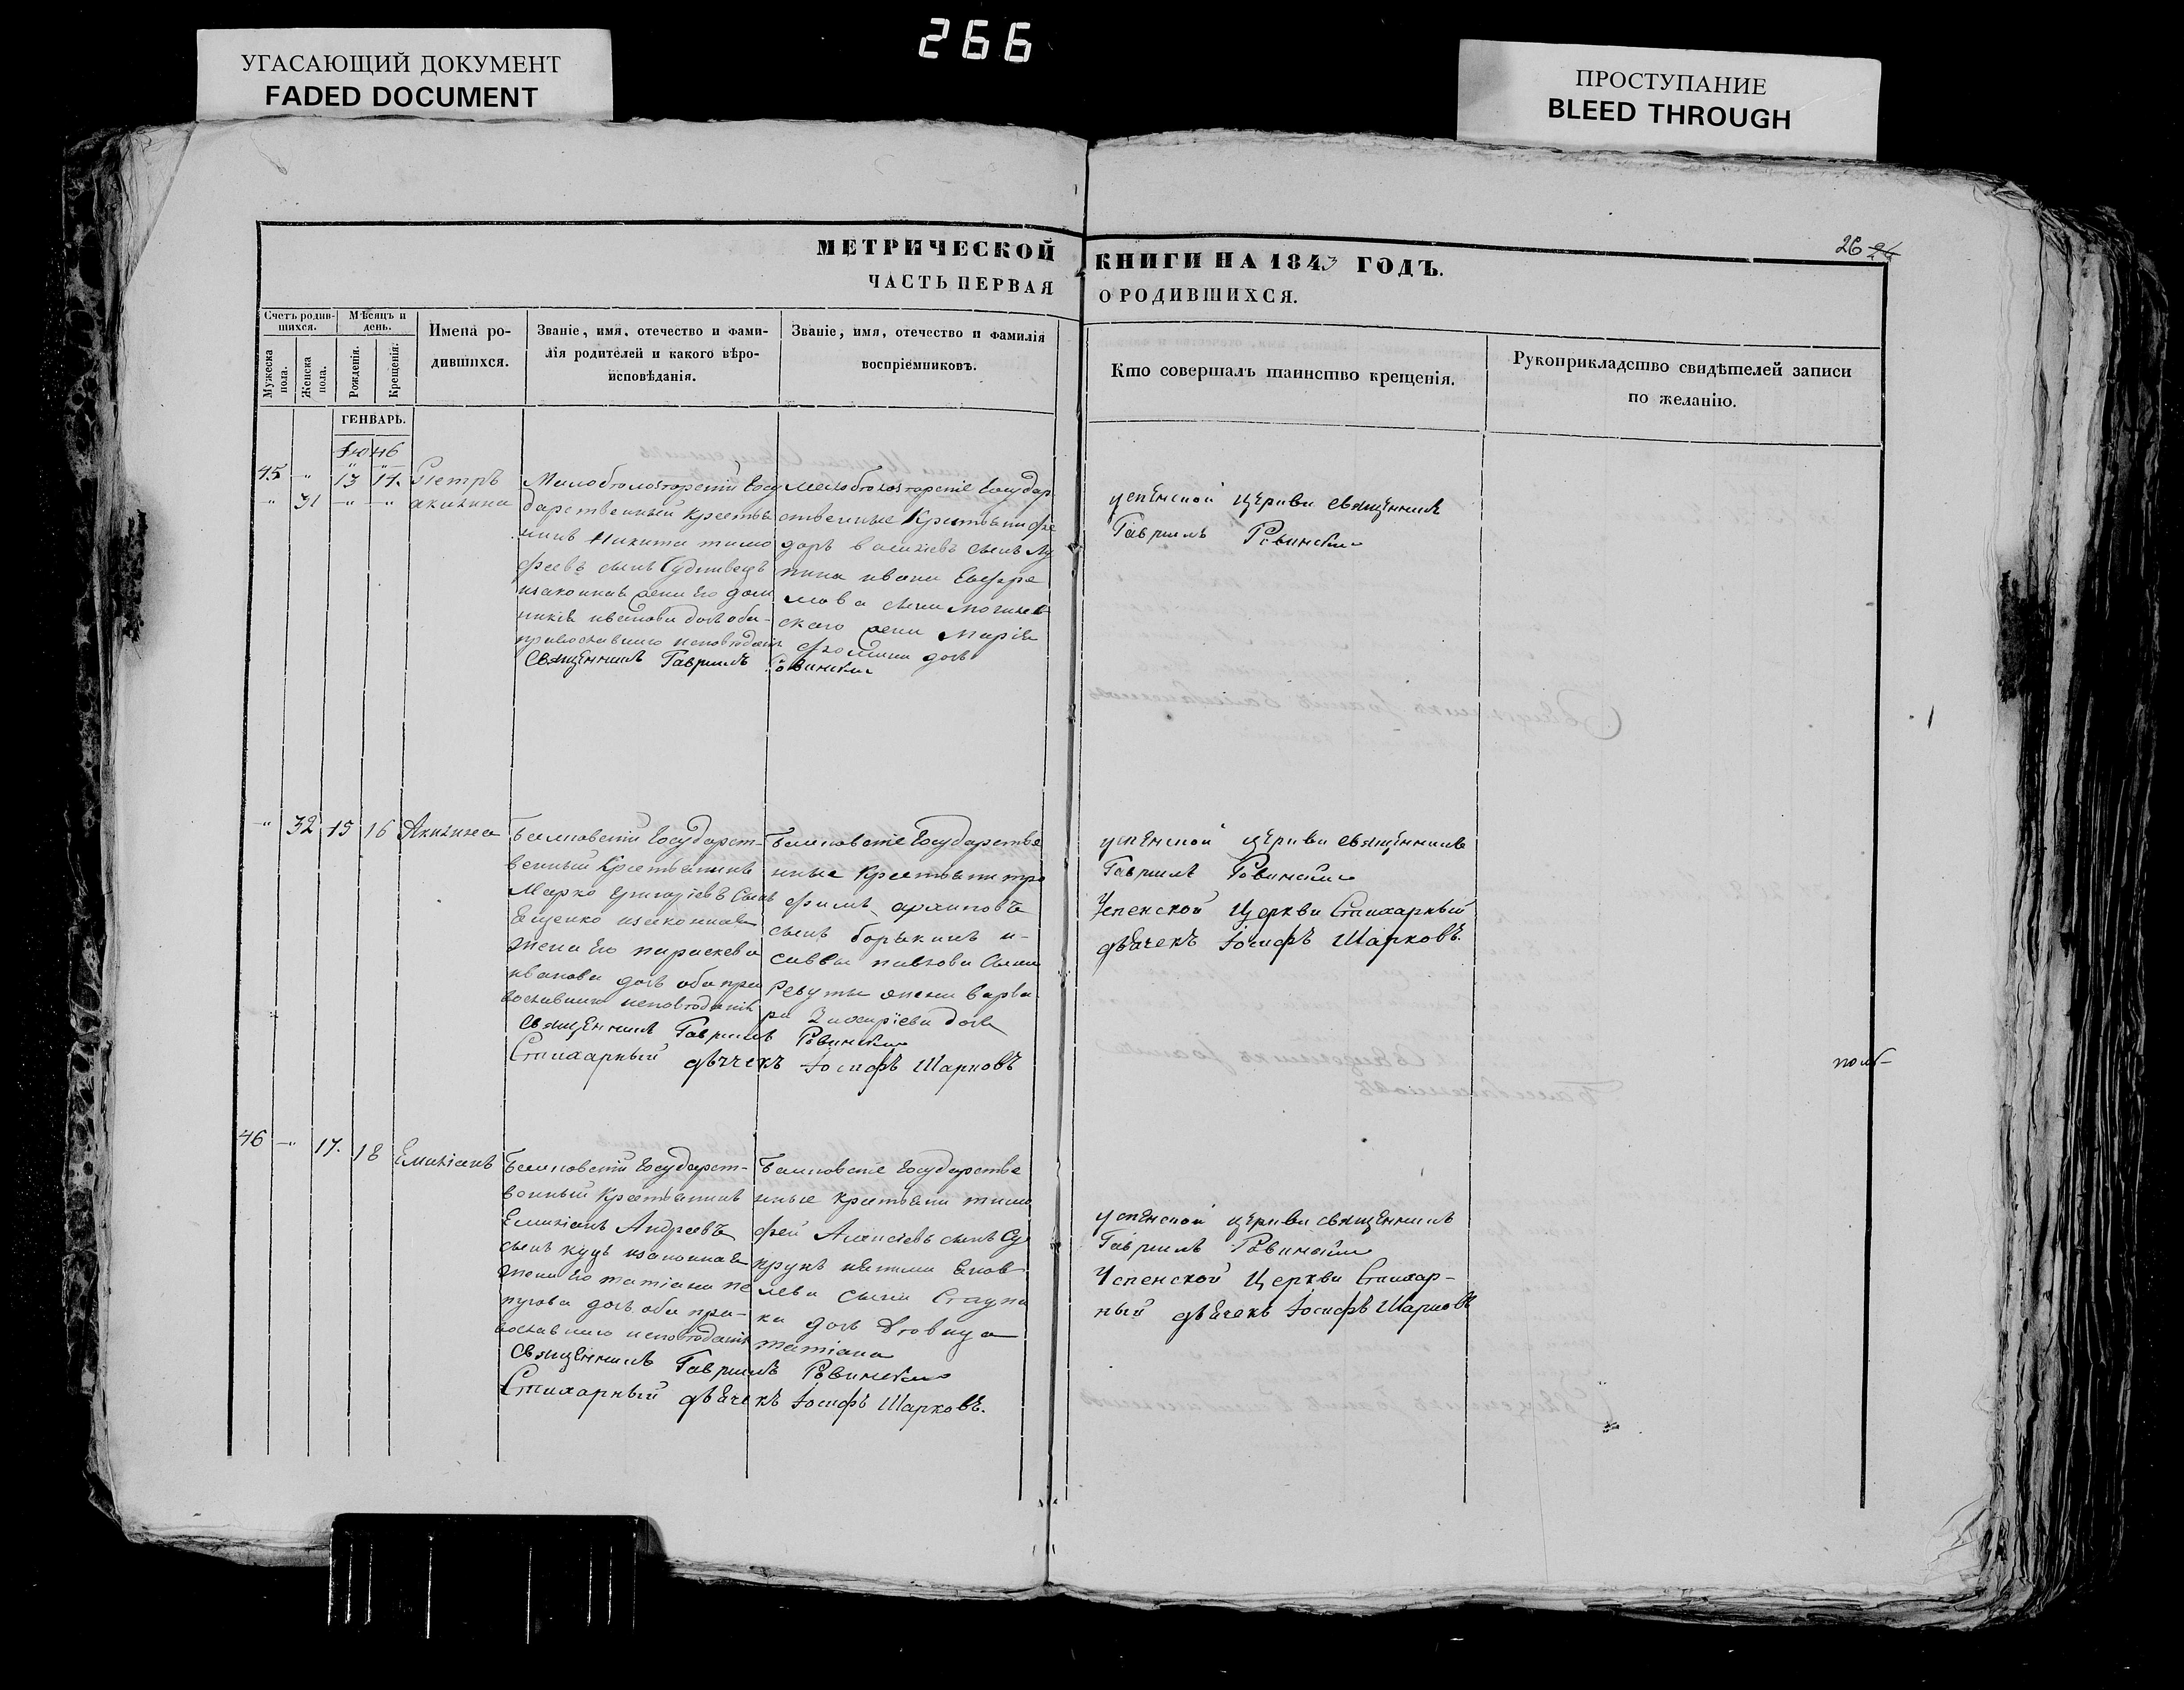 266
УГАСАЮЩИЙ ДОКУМЕНТ
FADED DOCUMENT
ПРОСТУПАНИЕ
BLEED THROUGH
26 24
МЕТРИЧЕСКОЙ КНИГИ НА 1843 ГОДЪ.
ЧАСТЬ ПЕРВАЯ О РОДИВШИХСЯ.
Счетъ родив-
шихся.
Мѣсяцъ и
день.
Мужеска
пола.
Женска
пола.
Рожденія.
Крещенія.
Имена ро-
дившихся.
Званіе, имя, отечество и фами-
лія родителей и какого вѣро-
исповѣданія.
Званіе, имя, отечество и фамилія
воспріемниковъ.
Кто совершалъ таинство крещенія.
Рукоприкладство свидѣтелей записи
по желанію.
ГЕНВАРЬ.
45 " 13 14. Петръ
" 31 " " акилина
Малобѣлозорскій Госу
дарственный Крестья
нинъ Никита тимо
феевъ сынъ
жена его дом
никія иванова дочь оба-
православнаго исповѣданія
Священникъ Гавриилъ Ровинскій
малобѣлозорскіе Государ
ственные Крестьяни фе
доръ василіевъ сынъ Лу
ивана Ефре
мова сына
скаго жена Марія
дочь
успенской церкви священникъ
Гавриилъ Ровинскій
" 32 15 16 Акилина
Бѣлковскій Государст-
венный Крестьянинъ
Марко Григоріевъ Сынъ
Ещенко изаконная
жена его параскева
иванова дочь оба пра
вославнаго исповѣданія
Священникъ Гавриилъ Ровинскій
Стихарный дьячекъ Іосифъ Шарковъ
Бѣлковскіе Государстве
нные Крестьяни тро
фимъ архиповъ
сынъ борыкинъ и-
саввы павлова Сына
Ревуты жена варва
ра Захаріева дочь
успенской церкви священникъ
Гавриилъ Ровинскій
Успенской Церкви Стихарный
дьячекъ Іосифъ Шарковъ.
46 " 17. 18 Емиліанъ
Бѣлковскій Государст-
венный Крестьянинъ
Емиліанъ Андреевъ
сынъ куцъ изаконная
жена его татіана
дочь оба пра-
вославнаго исповѣданія
Священникъ Гавриилъ Ровинскій
Стихарный дьячекъ Іосифъ Шарковъ.
Бѣлковскіе Государстве
нные крестьяни тимо
фей Алексіевъ сынъ Су
прунъ
сына
ка дочь дѣвица
татіана
успенской церкви священникъ
Гавриилъ Ровинскій
Успенской Церкви Стихар-
ный дьячекъ Іосифъ Шарковъ